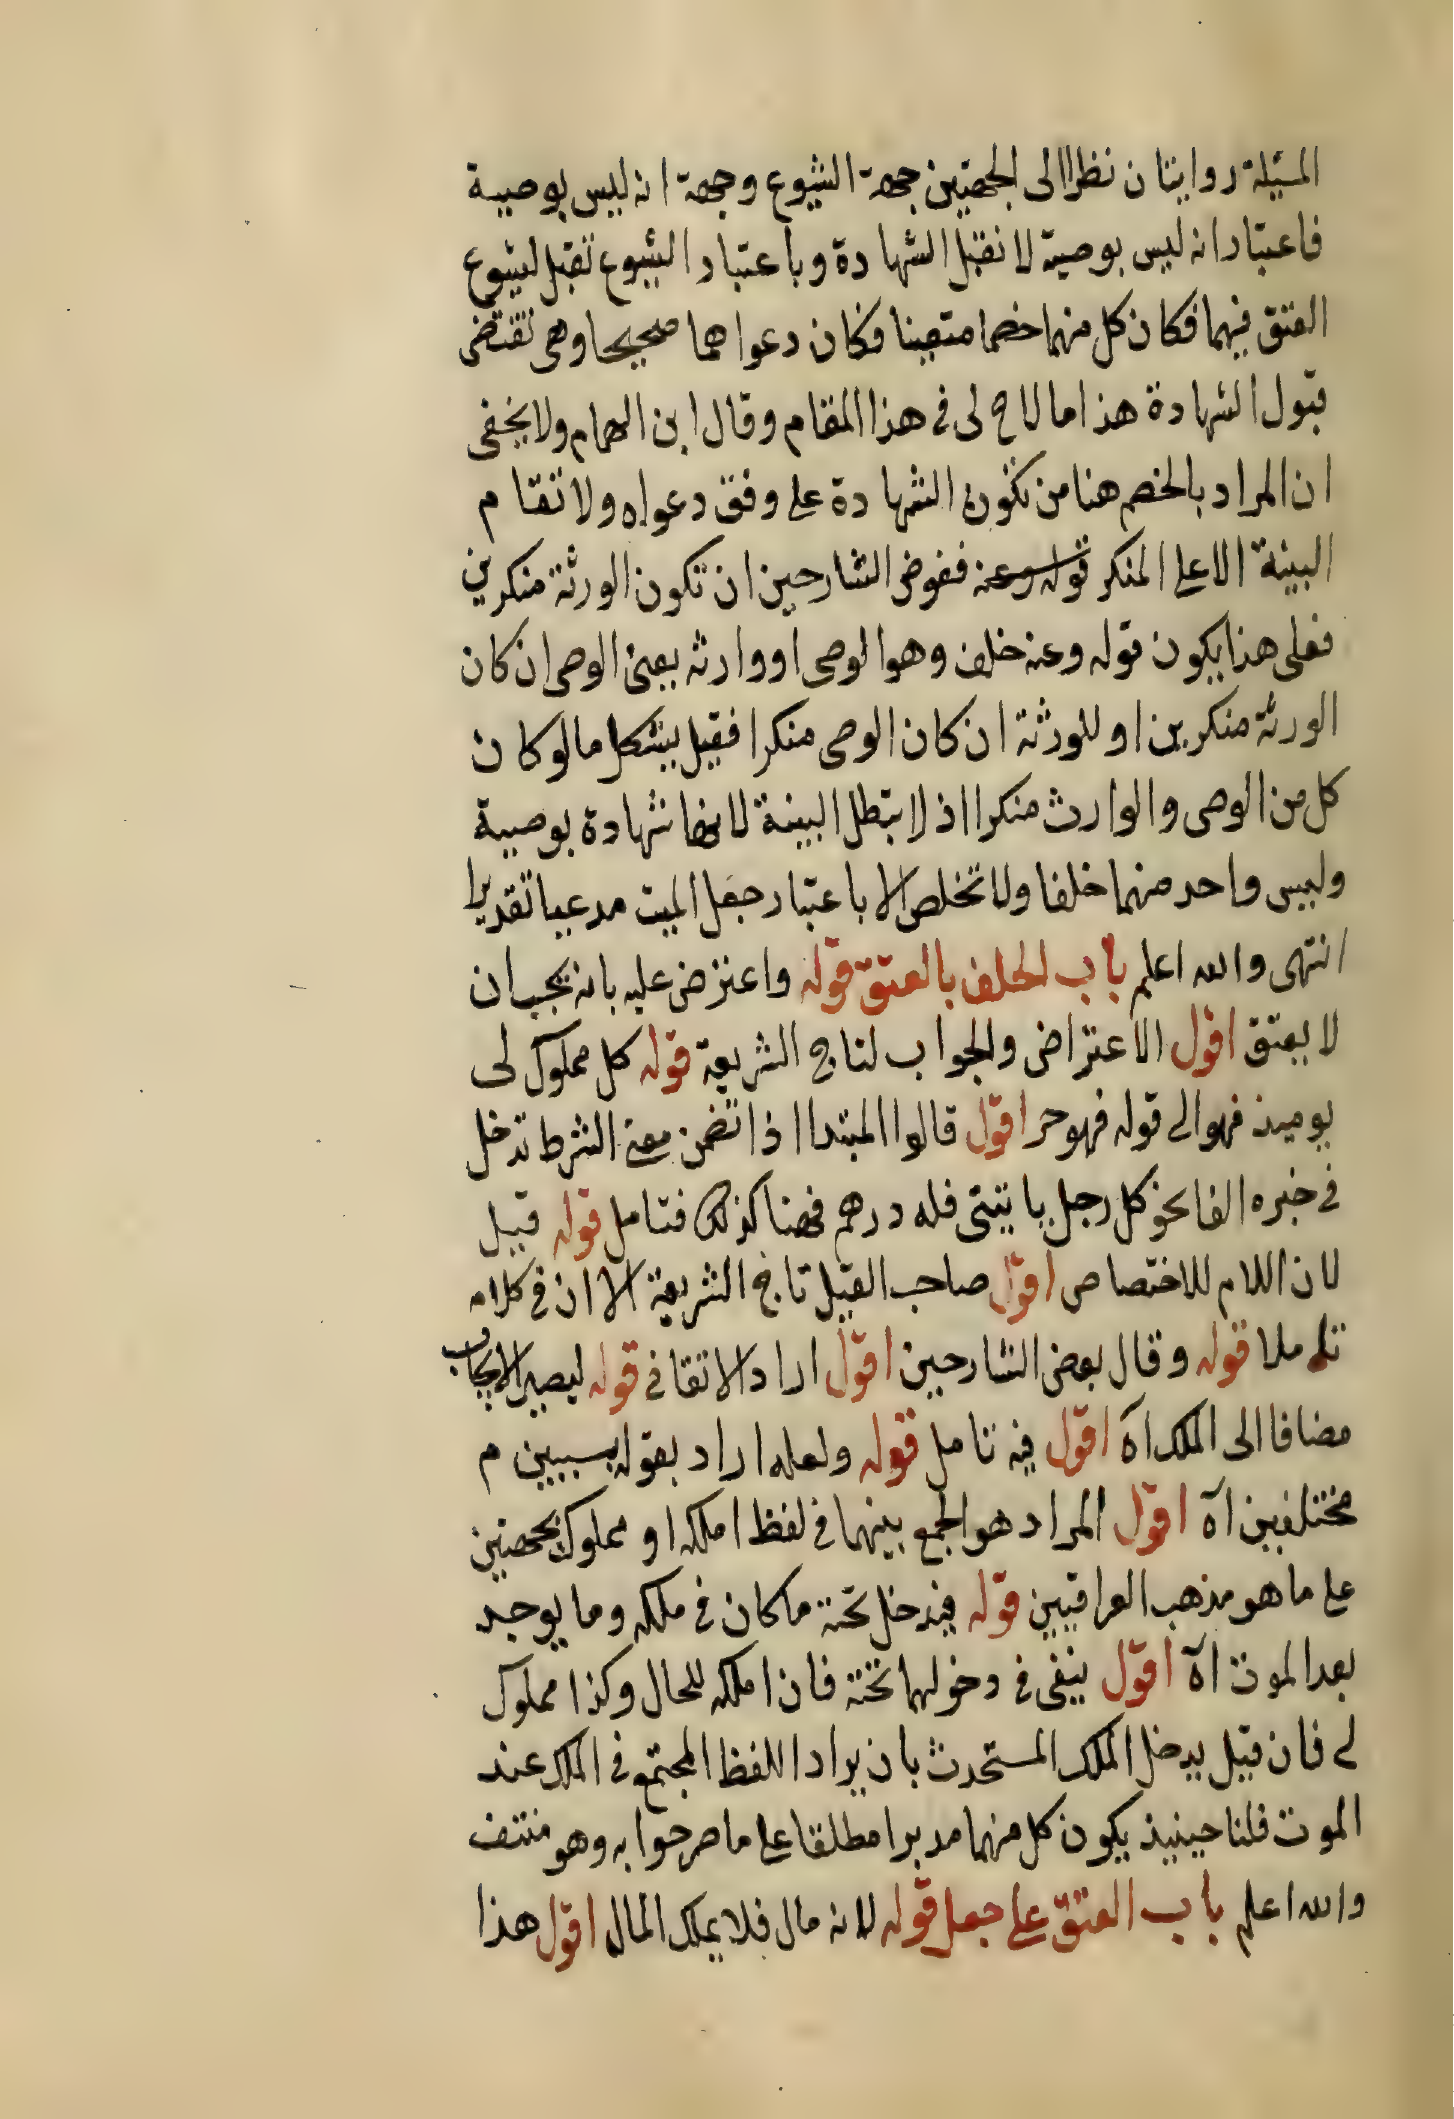 المسئلة روايتان نظرا الى الجهتين جهة الشيوع وجهة انه ليس بوصية
فاعتبار انه ليس بوصية لا نقبل الشهادة وباعتبار الشيوع تقبل لشيوع
العتق فيهما فكان كل منهما خصما متعينا فكان دعواهما صحيحا وهى تقتضى
قبول الشهادة هذا ما لاح لى فى هذا المقام وقال ابن الهمام ولا يخفى
ان المراد بالخصم هنا من تكون الشهادة على وفق دعواه ولا تقام
البينة الا على المنكر قوله وعنه ففوض الشارحين ان تكون الورثة منكرين
فعلى هذا يكون قوله وعنه خلف وهو الوصى او وارثه يعنى الوصى ان كان
الورثة منكرين او للورثة ان كان الوصى منكرا فقيل يشكل ما لو كان
كل من الوصى والوارث منكرا اذ لا تبطل البينة لانها شهادة بوصية
وليس واحد منهما خلفا ولا تخلص الا باعتبار جعل الميت مدعيا تقديرا
انتهى والله اعلم باب الحلف بالعتق قوله واعترض عليه بانه يجب ان
لا يعتق اقول الاعتراض والجواب لتاج الشريعة قوله كل مملوك لى
يوميذ فهو الى قوله فهو حر اقول قالوا المبتدا اذا تضمن معنى الشرط تدخل
فى خبره الفا نحو كل رجل ياتينى فله درهم فهنا كذلك فتامل قوله قيل
لان اللام للاختصاص اقول صاحب القيل تاج الشريعة الا ان فى كلامه
تاملا قوله وقال بعض الشارحين اقول اراد الاتقانى قوله ليصير الايجاب
مضافا الى الملك اه اقول فيه تامل قوله ولعله اراد بقوله بسببين م
مختلفين اه اقول المراد هو الجمع بينهما فى لفظ املكه او مملوك بجهتين
على ما هو مذهب العراقيين قوله فيدخل تحته ما كان فى ملكه وما يوجد
بعد الموت اه اقول ينفى فى دخولهما تحته فان املكه للحال وكذا مملوك
لى فان قيل يدخل الملك المستحدث بان يراد اللفظ المجتمع فى الملك عند
الموت قلنا حينيذ يكون كل منهما مدبرا مطلقا على ما صرحوا به وهو منتف
والله اعلم باب العتق على جعل قوله لانه مال فلا يملك المال اقول هذا